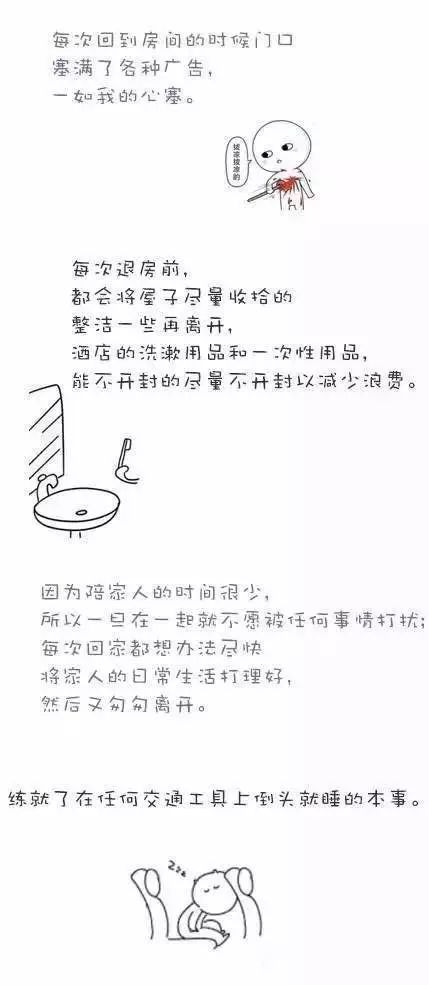 每次回到房间的时候门口
塞满了各种广告,
一如我的心塞。
拔凉拔凉的
每次退房前,
都会将屋子尽量收拾的
整洁一些再离开,
酒店的洗漱用品和一次性用品,
能不开封的尽量不开封以减少浪费。
因为陪家人的时间很少,
所以一旦在一起就不愿被任何事情打扰;
每次回家都想办法尽快
将家人的日常生活打理好,
然后又匆匆离开。
练就了在任何交通工具上倒头就睡的本事。
zzz